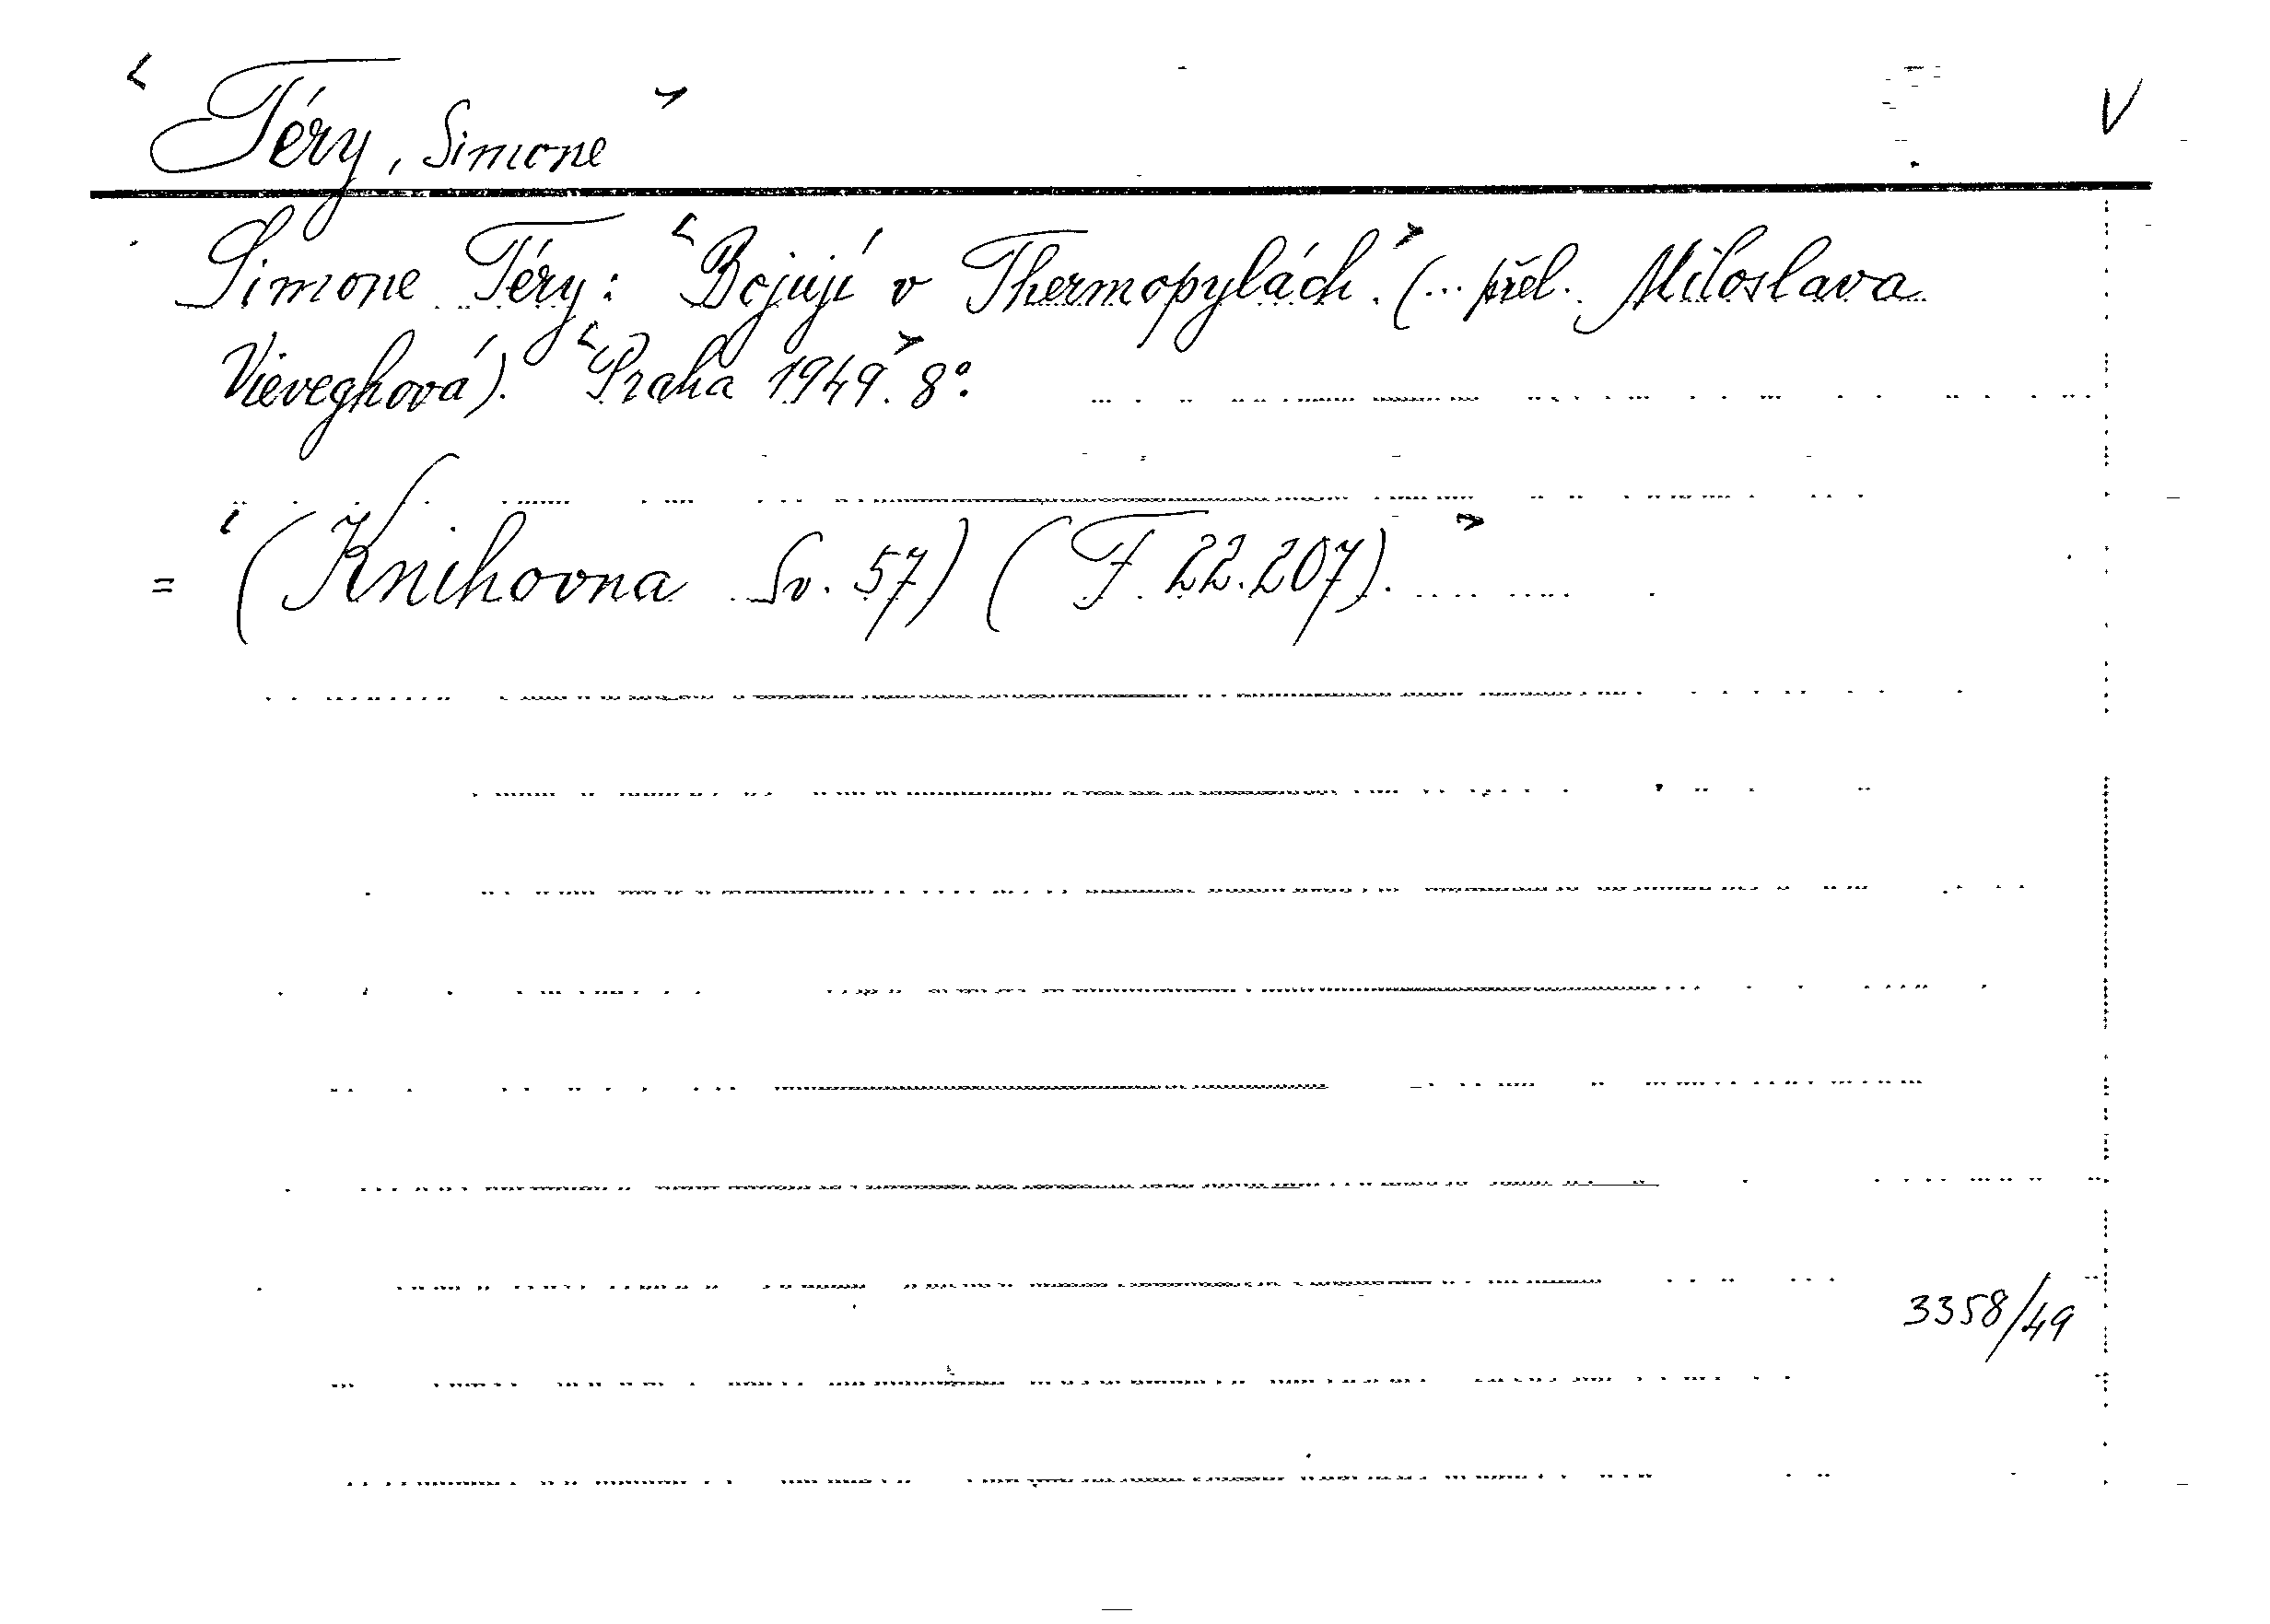 < Téry, Simone > V
Simone Téry: < Bojují v Thermopylách. > (... přel. Miloslava
Vieveghová). < Praha 1949. > 8°.
= < (Knihovna Sv. 57) (F 22.207). >
3358/49